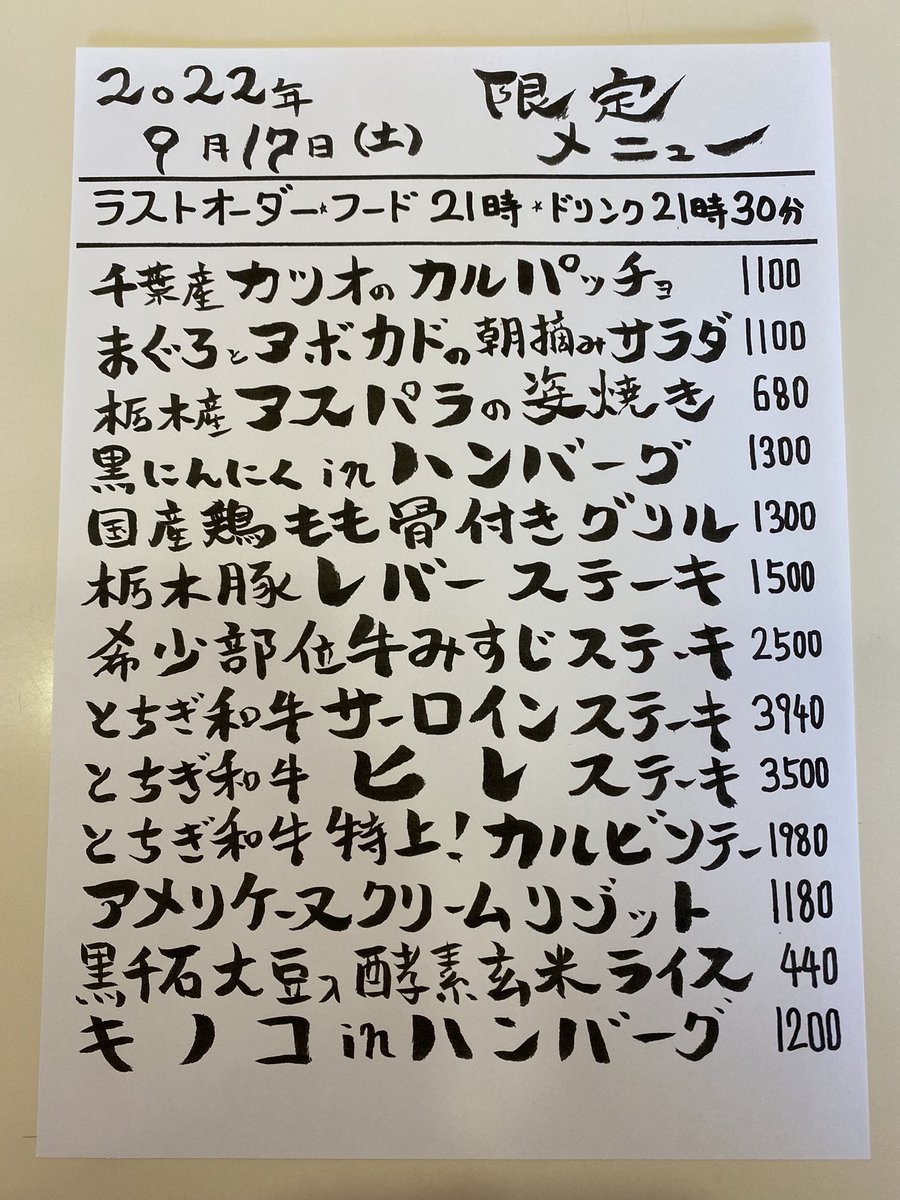 2022年
9月17日(土)
限定
メニュー
ラストオーダー*フード 21時 * ドリンク21時30分
千葉産カツオのカルパッチョ 1100
まぐろとアボカドの朝摘みサラダ 1100
栃木産アスパラの姿焼き 680
黒にんにくinハンバーグ 1300
国産鶏もも骨付きグリル 1300
栃木豚レバーステーキ 1500
希少部位牛みすじステーキ 2500
とちぎ和牛サーロインステーキ 3940
とちぎ和牛ヒレステーキ 3500
とちぎ和牛特上!カルビソテー 1980
アメリケーヌクリームリゾット 1180
黒千石大豆入酵素玄米ライス 440
キノコinハンバーグ 1200